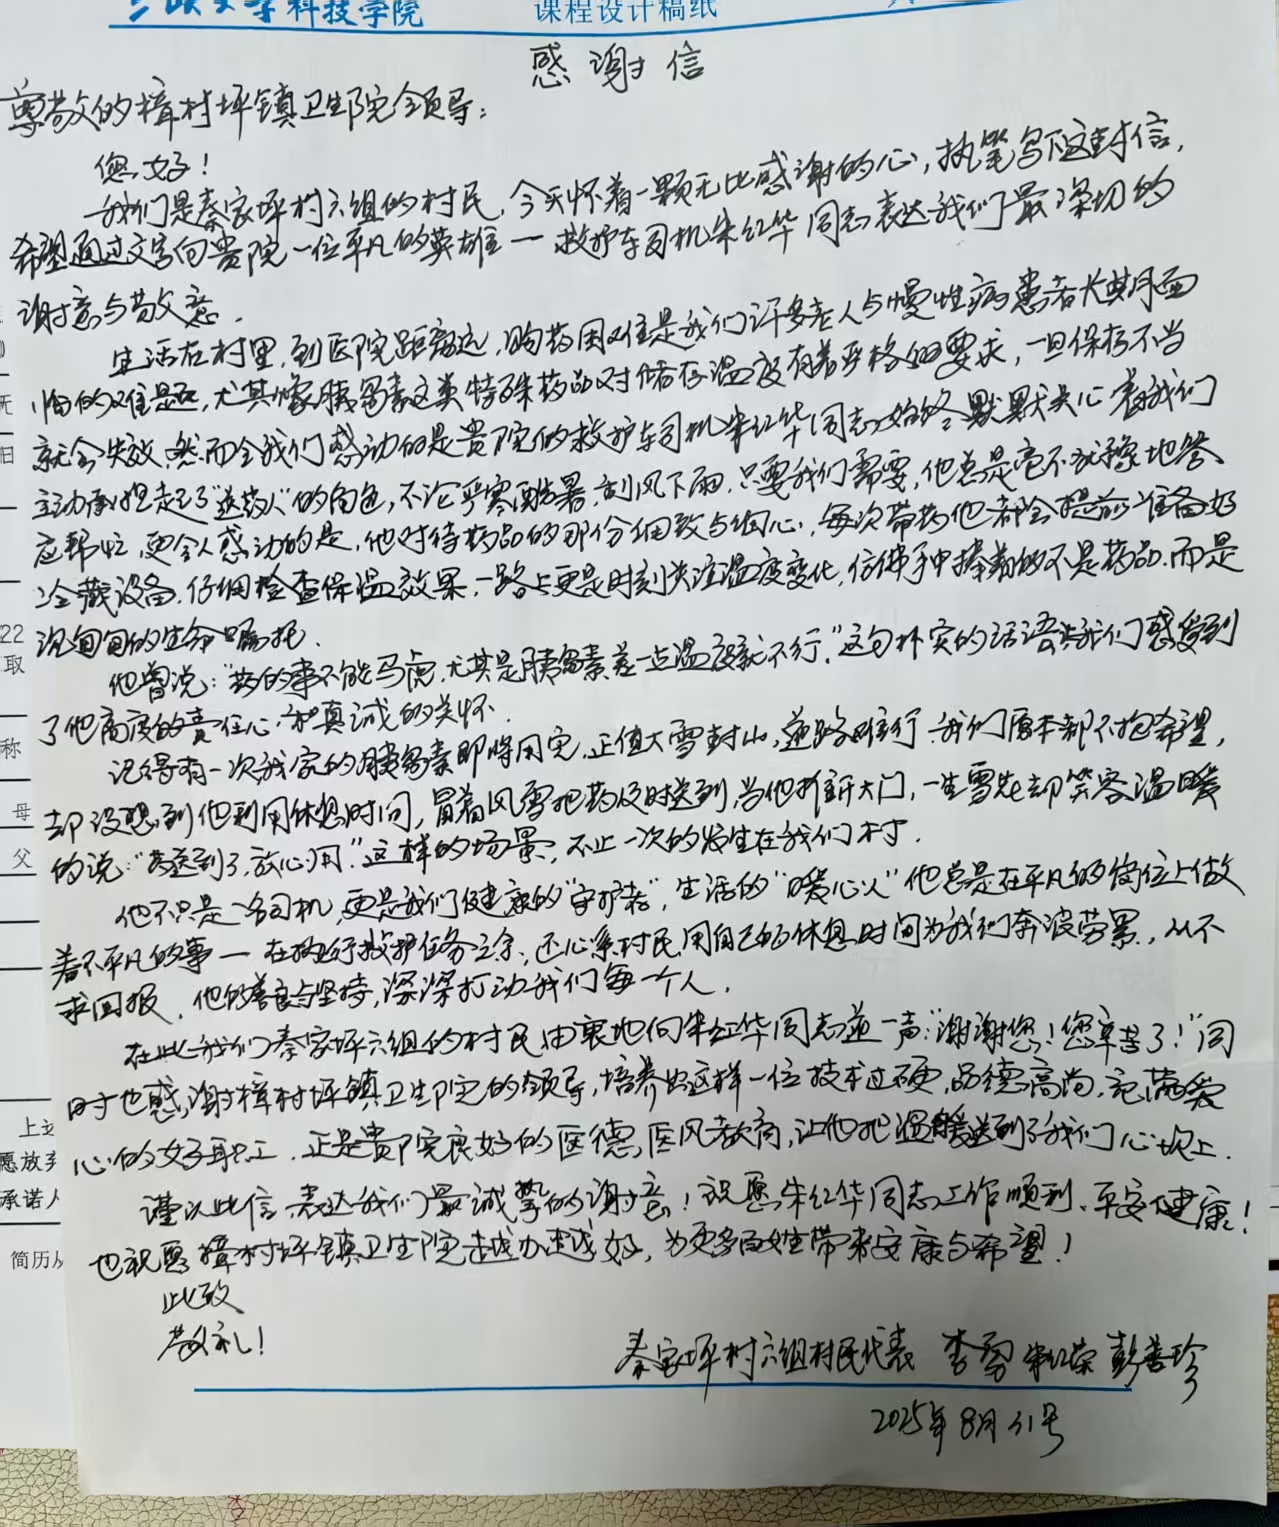 科技学院 课程设计稿纸
感谢信
尊敬的樟村坪镇卫生院领导：
您好！
我们是秦家坪村六组的村民，今天怀着一颗无比感谢的心，执笔写下这封信，
希望通过文字向贵院一位平凡的英雄一救护车司机朱红华同志表达我们最深切的
谢意与敬意．
生活在村里，到医院距离远，购药困难是我们许多老人与慢性病患者长期面
临的难题，尤其像胰岛素这类特殊药品对储存温度有着严格的要求，一旦保存不当
就会失效，然而令我们感动的是贵院的救护车司机朱红华同志始终默默关心着我们
主动承担起了"送药人"的角色，不论严寒酷暑、刮风下雨，只要我们需要，他总是毫不犹豫地答
应帮忙，更令人感动的是，他对待药品的那份细致与细心，每次带药他都会提前准备好
冷藏设备，仔细检查保温效果，一路上更是时刻关注温度变化，仿佛手中捧着的不是药品，而是
沉甸甸的生命嘱托．
他曾说："药的事不能马虎，尤其是胰岛素差一点温度就不行．"这句朴实的话语让我们感受到
了他高度的责任心和真诚的关怀．
记得有一次我家的胰岛素即将用完，正值大雪封山，道路难行，我们原本都不抱希望，
却没想到他利用休息时间，冒着风雪把药及时送到，当他推开大门，一生雪花却笑容温暖
的说："药送到了，放心用．"这样的场景，不止一次的发生在我们村．
他不只是一名司机，更是我们健康的"守护者"，生活的"暖心人"他总是在平凡的岗位上做
着不平凡的事一在执行救护任务之余，还心系村民，用自己的休息时间为我们奔波劳累，从不
求回报，他的善良与坚持，深深打动我们每一个人．
在此我们秦家坪六组的村民由衷地向朱红华同志道一声："谢谢您！您辛苦了！"同
时也感谢樟村坪镇卫生院的领导，培养出这样一位技术过硬，品德高尚，充满爱
心的好职工，正是贵院良好的医德医风教育，让他把温暖送到了我们心坎上．
谨以此信，表达我们最诚挚的谢意！祝愿朱红华同志工作顺利、平安健康！
也祝愿樟村坪镇卫生院越办越好，为更多百姓带来安康与希望！
此致
敬礼！
秦家坪村六组村民代表 李勇 朱红荣 彭善珍
2025年8月31号
22
取
称
母
父
愿放弃
承诺人
简历从